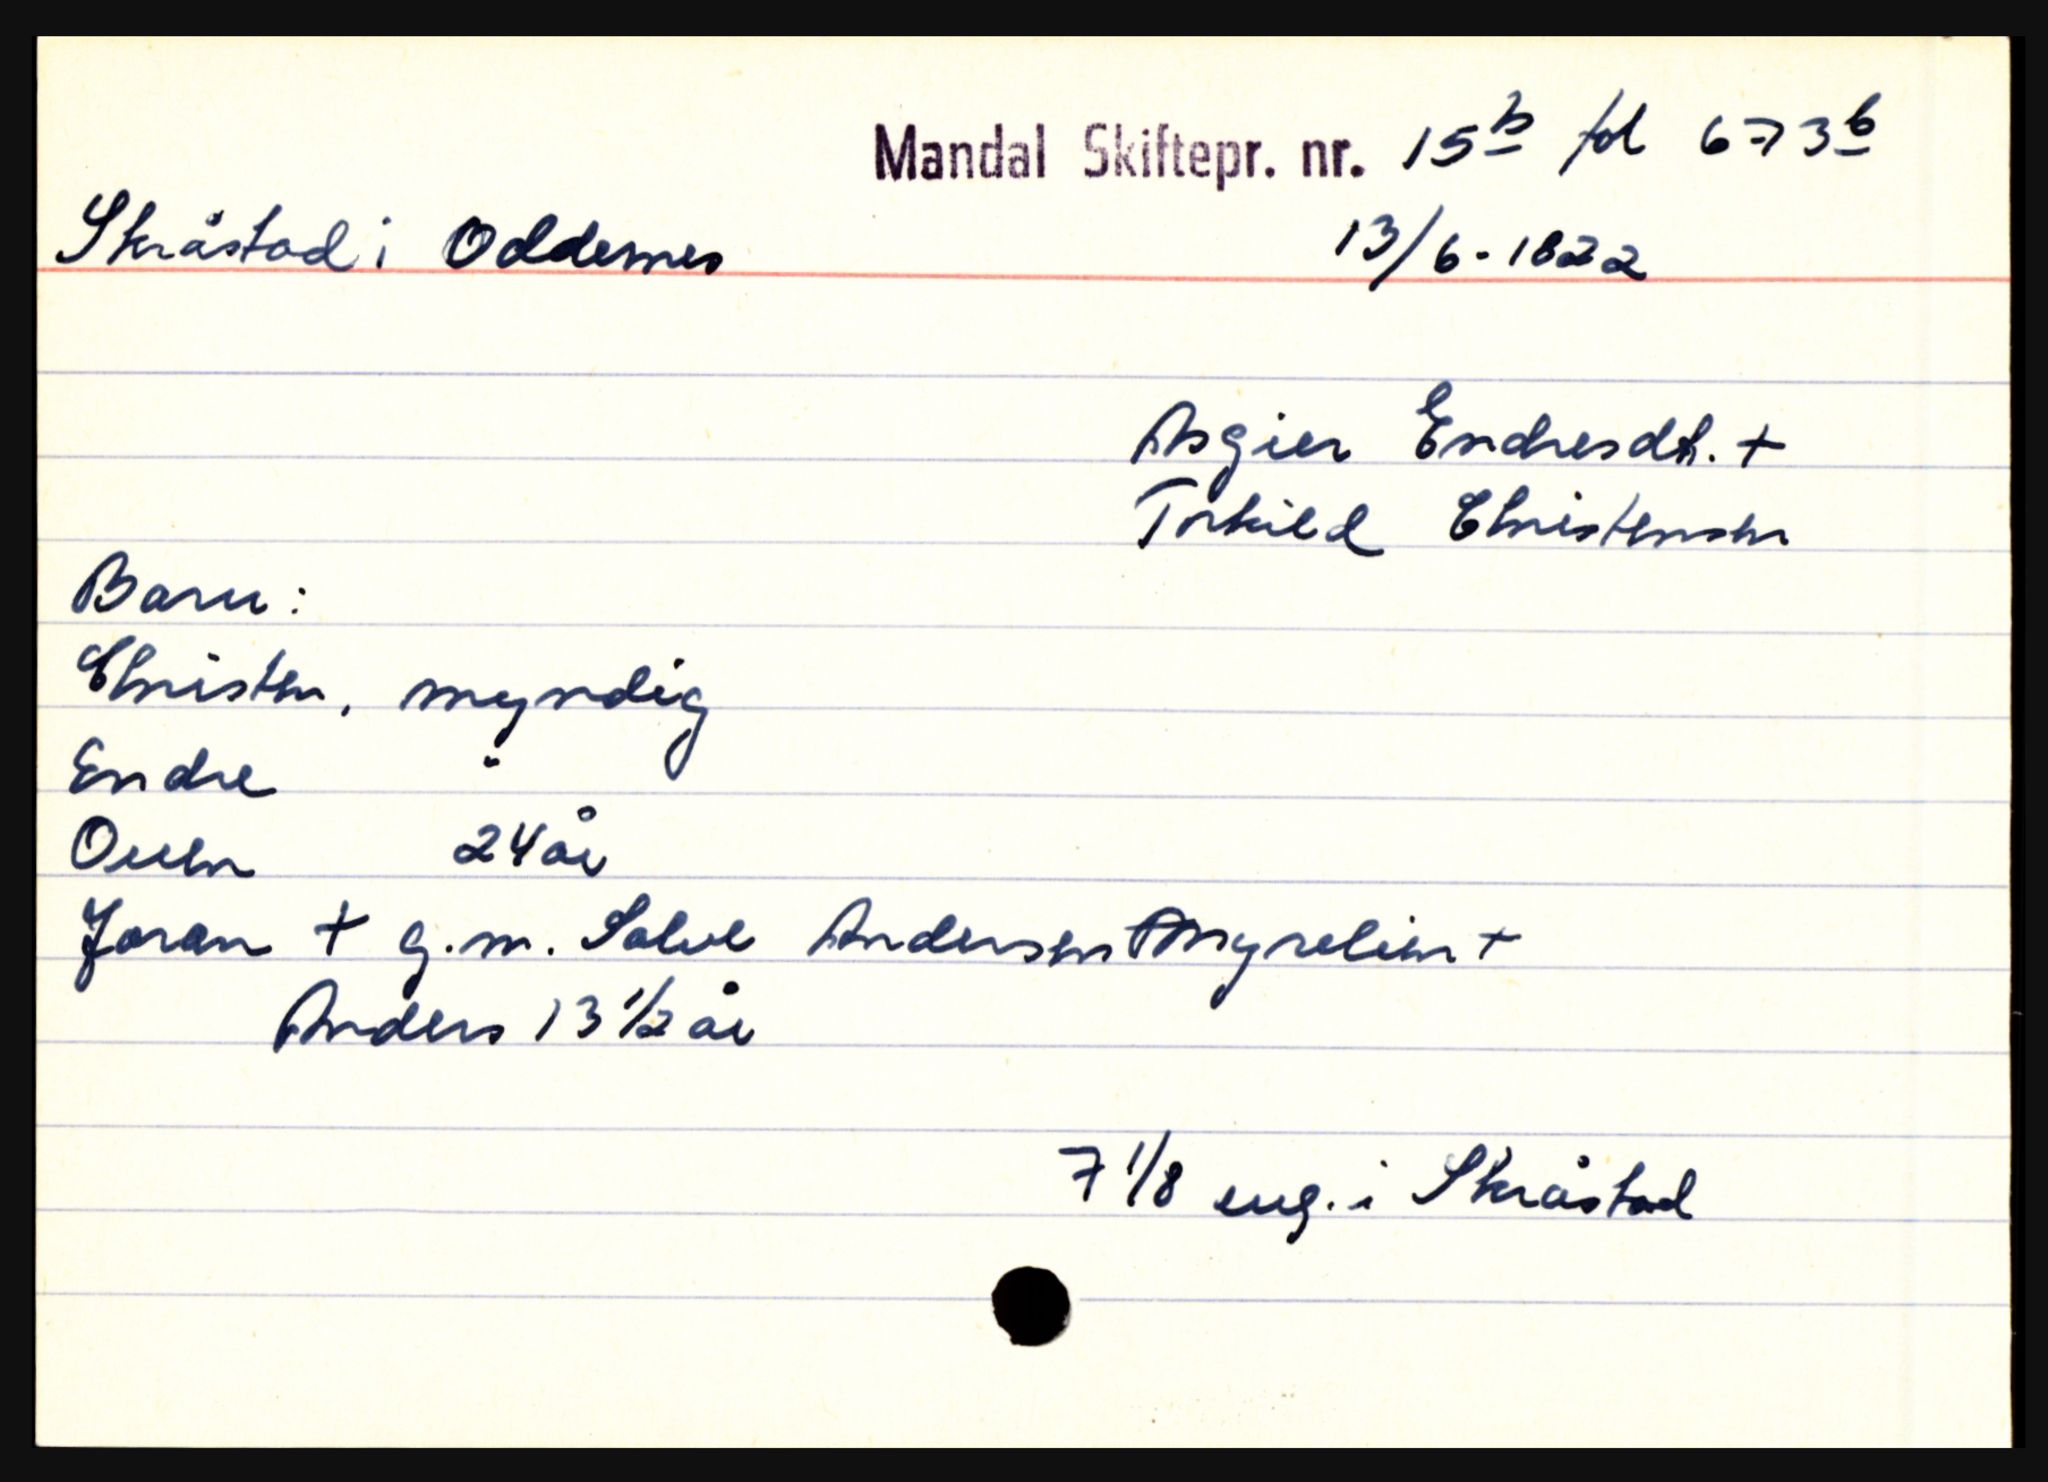 Mandal Skiftepr. nr. 15b fol 673b
Skråstad i Oddernes 13/6-1822
Asgier Endresdtr. +
Torkild Christensen
Barn:
Christen, myndig
Endre "
Ouen 24 år
Joran + g.m. Salve Andersen Myrelien +
Anders 13 1/2 år
7 1/8 eng. i Skråstad